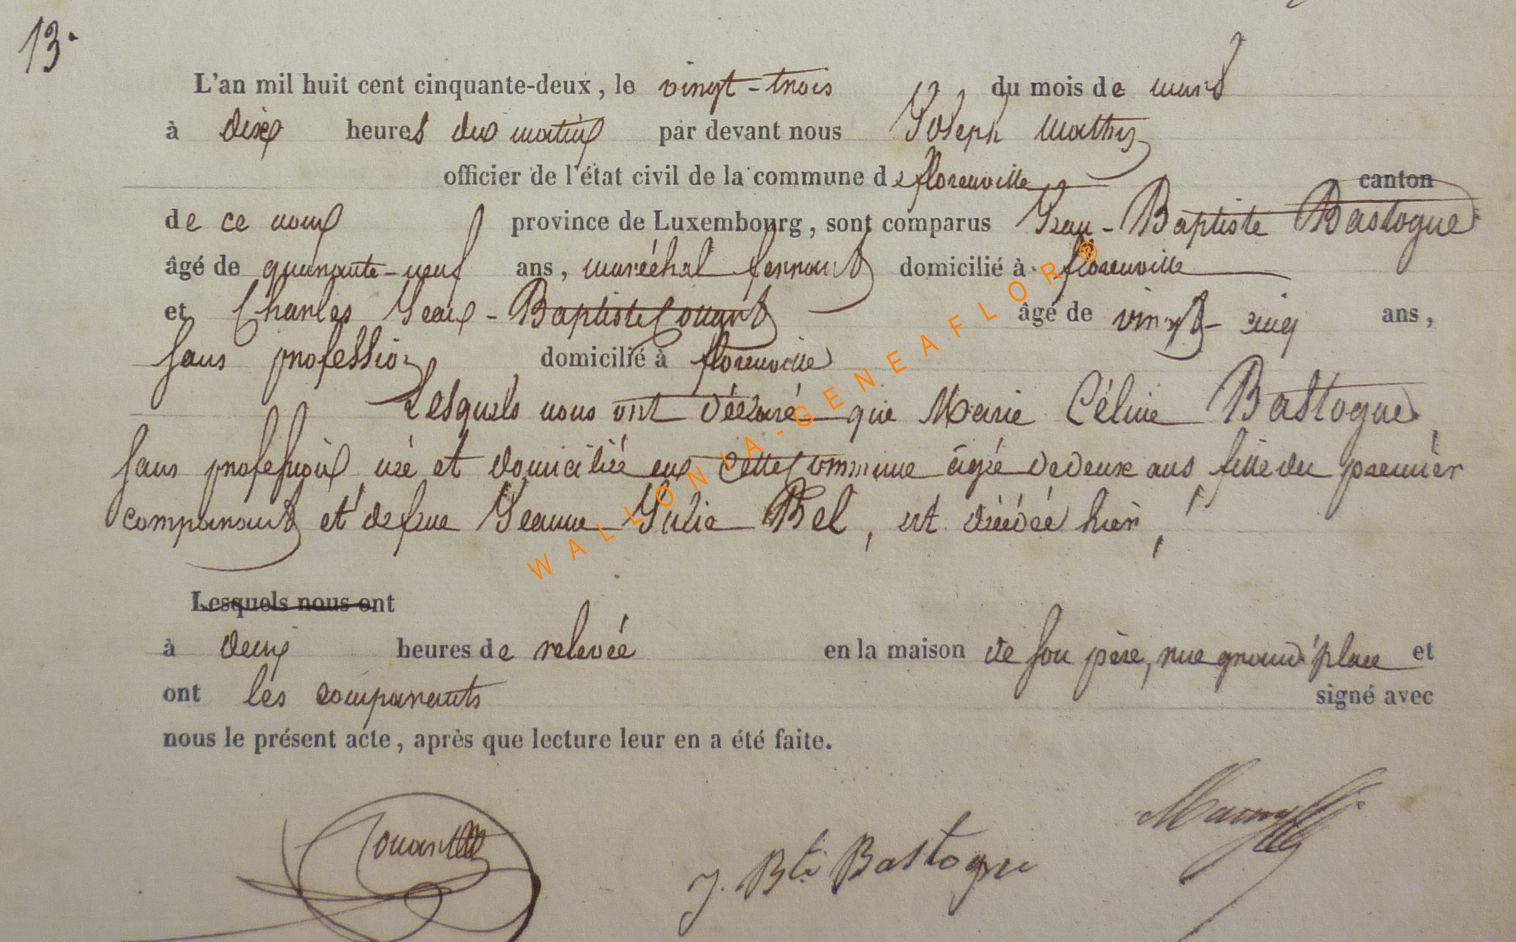 13.
L'an mil huit cent cinquante-deux, le vingt-trois du mois de mars
à dix heures du matin par devant nous Joseph Mathis
officier de l'état civil de la commune de florenville canton
de ce nom province de Luxembourg, sont comparus Jean-Baptiste Bastogne
âgé de quarante-neuf ans, maréchal ferrant domicilié à florenville
et Charles Jean-Baptiste âgé de vingt-cinq ans,
sans profession domicilié à florenville
Lesquels nous ont déclaré que Marie Céline Bastogne,
sans profession, née et domiciliée en cette commune âgée de deux ans, fille du premier
comparant et de feue Jeanne Julie Bel, est décédée hier,
Lesquels nous ont
à deux heures de relevée en la maison de son père, rue grand'place et
ont les comparants signé avec
nous le présent acte, après que lecture leur en a été faite.
J. Bte Bastogne
WALLONIA-GENEAFLOR®